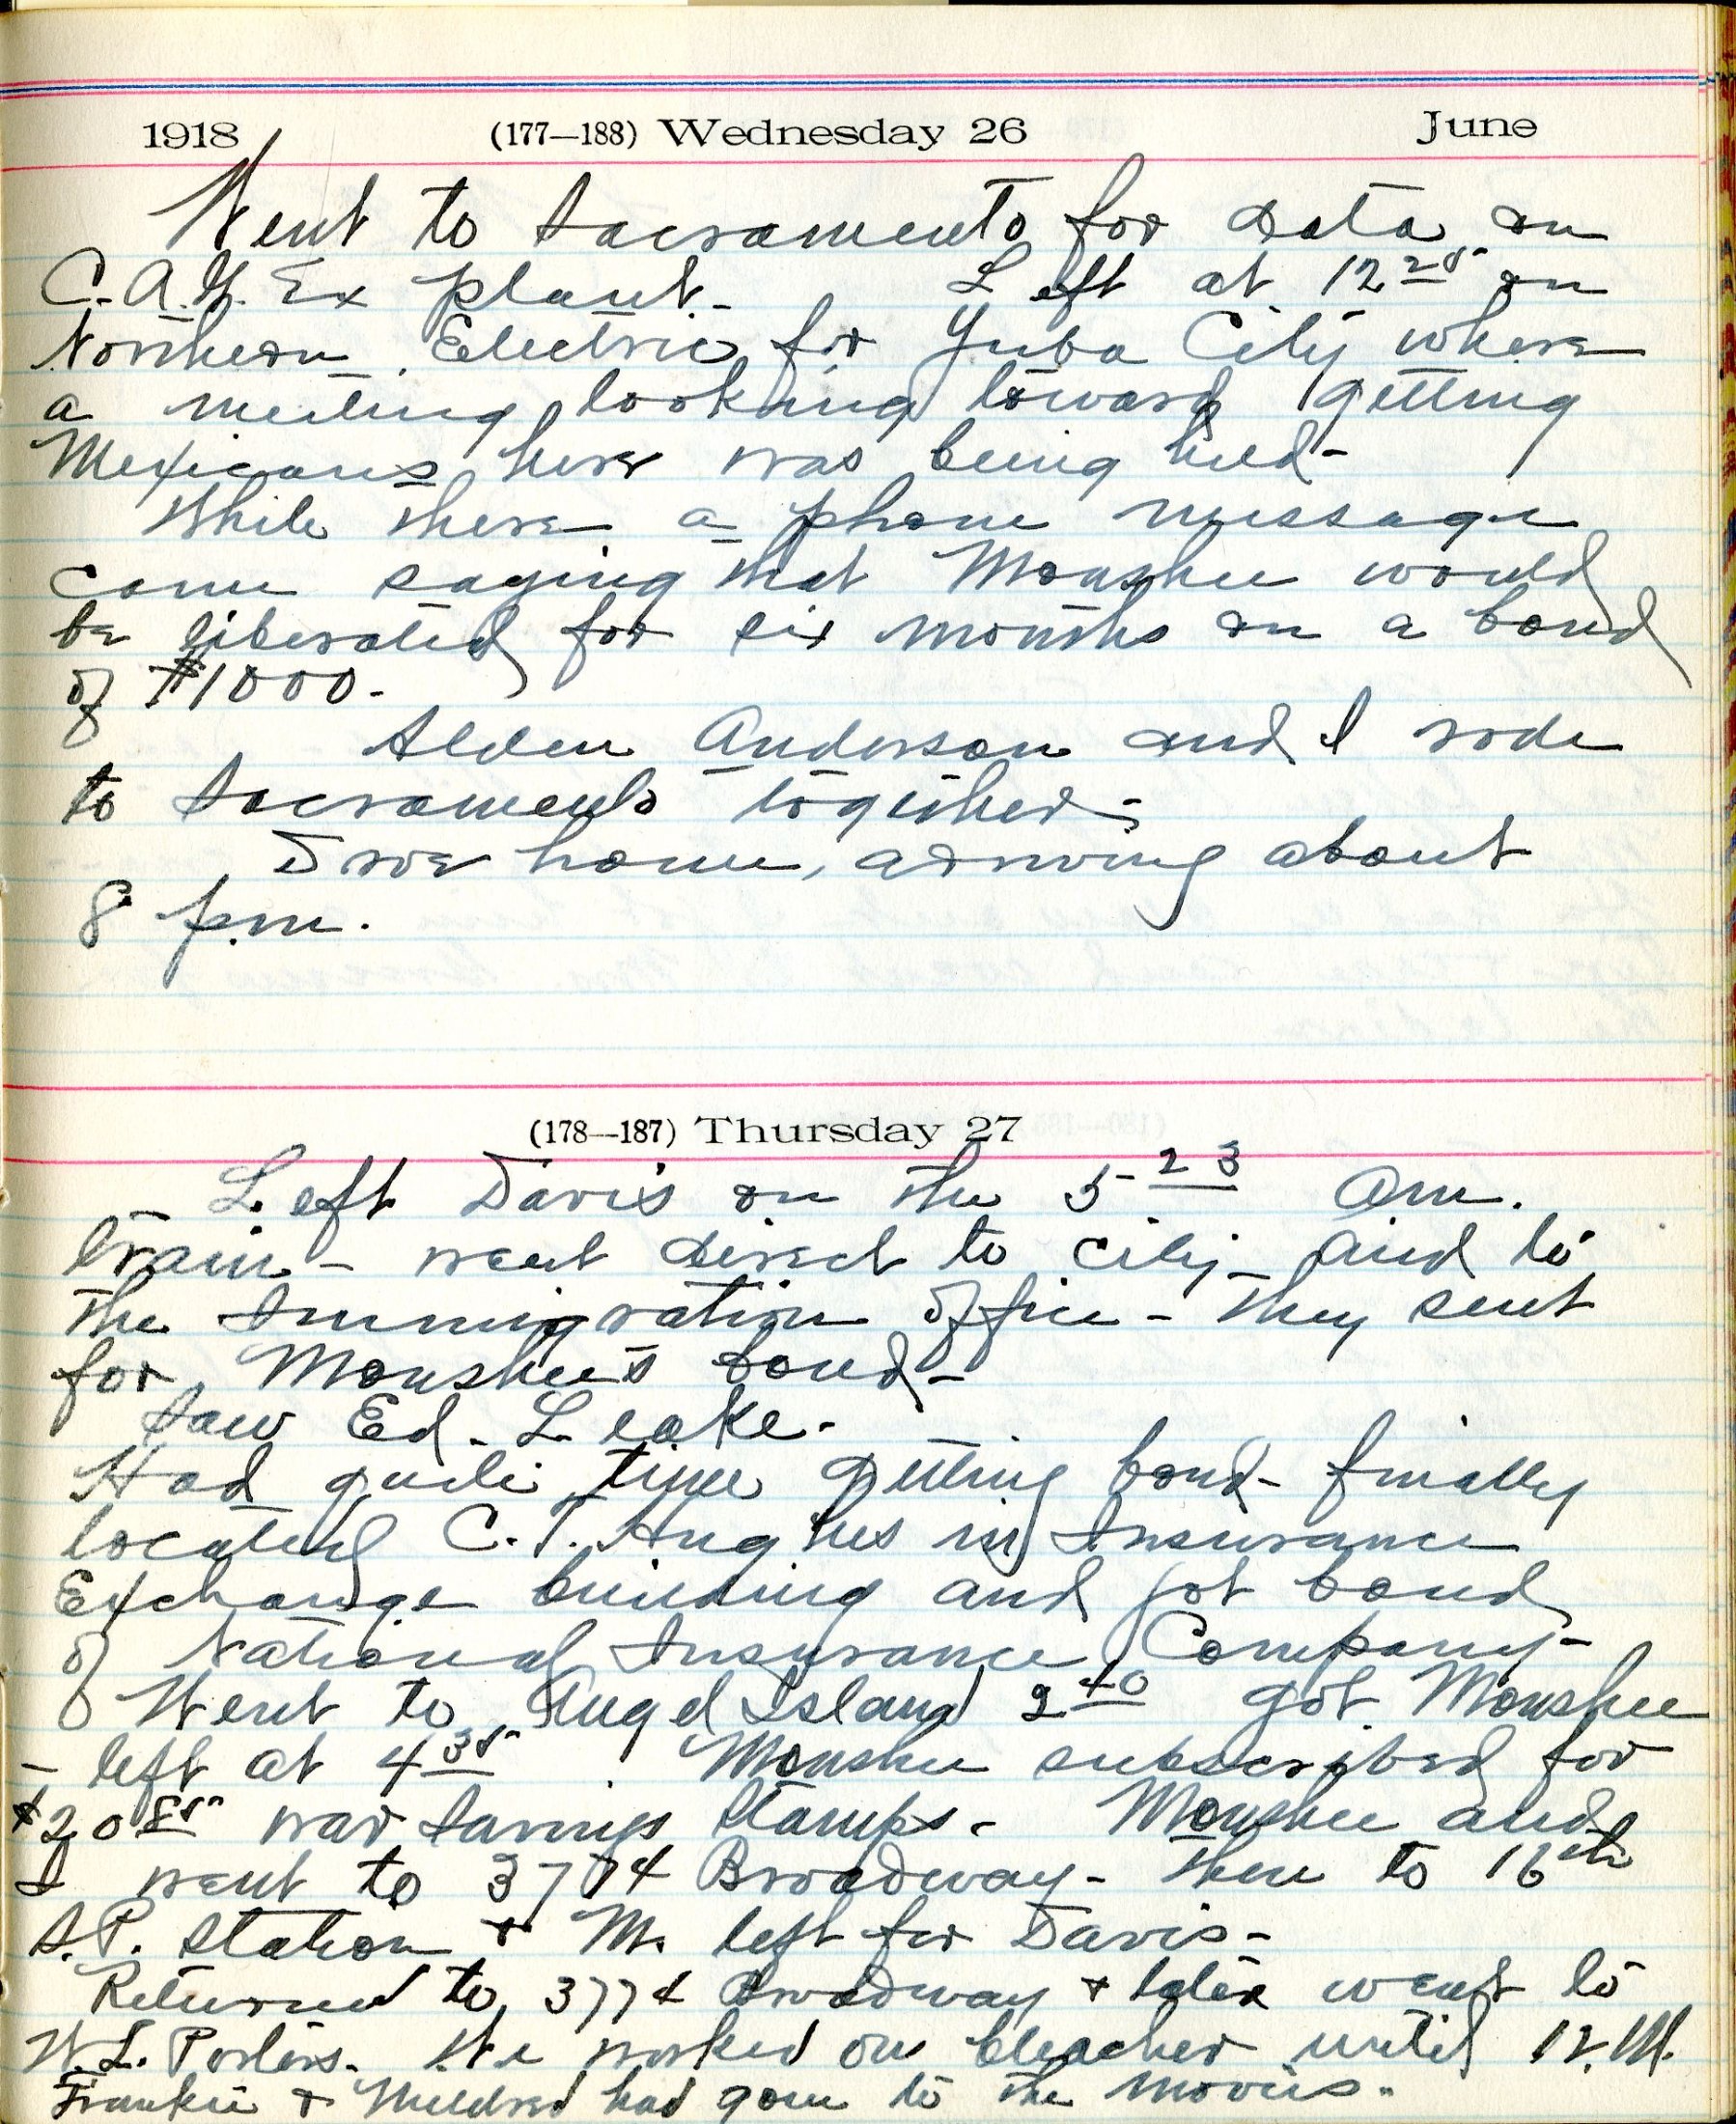 1918 (177—188) Wednesday 26 June
Went to Sacramento for data on
C.A.G. Ex plant. Left at 12 25 on
Northern Electric for Yuba City where
a meeting looking toward getting
Mexicans here was being held-
While there a phone message
came saying that Monshee would
be liberated for six months on a bond
of $1000.-
Alden Anderson and I rode
to Sacramento together-
Drove home, arriving about
8 p.m.
(178—187) Thursday 27
Left Davis on the 5 23 am.
train - went direct to city and to
the Immigration office - they sent
for Monshee's bond-
Saw Ed. Leake-
Had quite time getting bond- finally
located C.T. Hughes in Insurance
Exchange building and got bond
of National Insurance Company-
Went to Angel Island 2 40 got Monshee
- left at 4 35 Monshee subscribed for
$20 85 war savings stamps. - Monshee and
I went to 3774 Broadway - then to 16th
S.P. station & M. left for Davis-
Returned to 3774 Broadway & later went to
W.L. Porters. We worked on bleacher until 12. M.
Frankie & Mildred had gone to the movies.